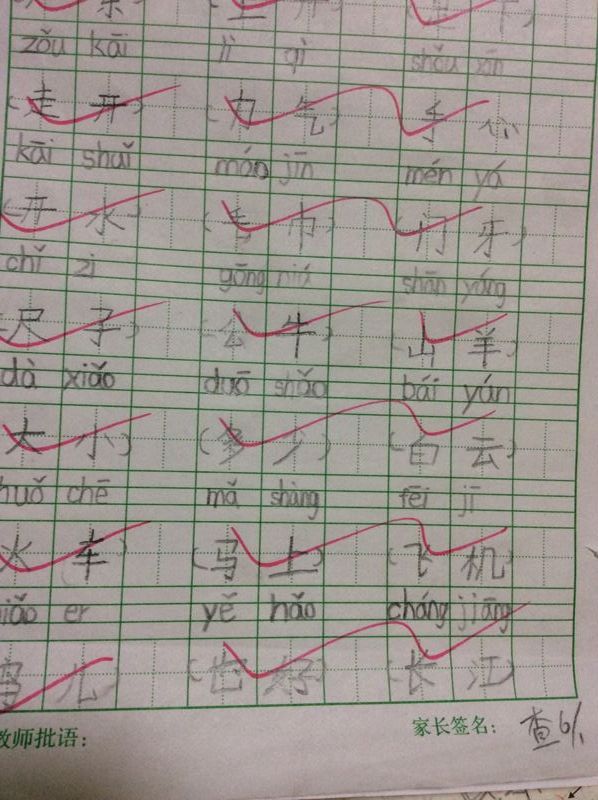 zǒu kāi lì qì shǒu xīn
(走 开) (力 气) 手 心
kāi shuǐ máo jīn mén yá
(开 水) (毛 巾) (门 牙)
chǐ zi gōng niú shān yáng
尺 子) (公 牛) (山 羊)
dà xiǎo duō shǎo bái yún
大 小) (多 少) (白 云)
huǒ chē mǎ shàng fēi jī
火 车) (马 上) (飞 机)
iǎo er yě hǎo cháng jiāng
鸟 儿) (也 好) (长 江)
教师批语： 家长签名： 查